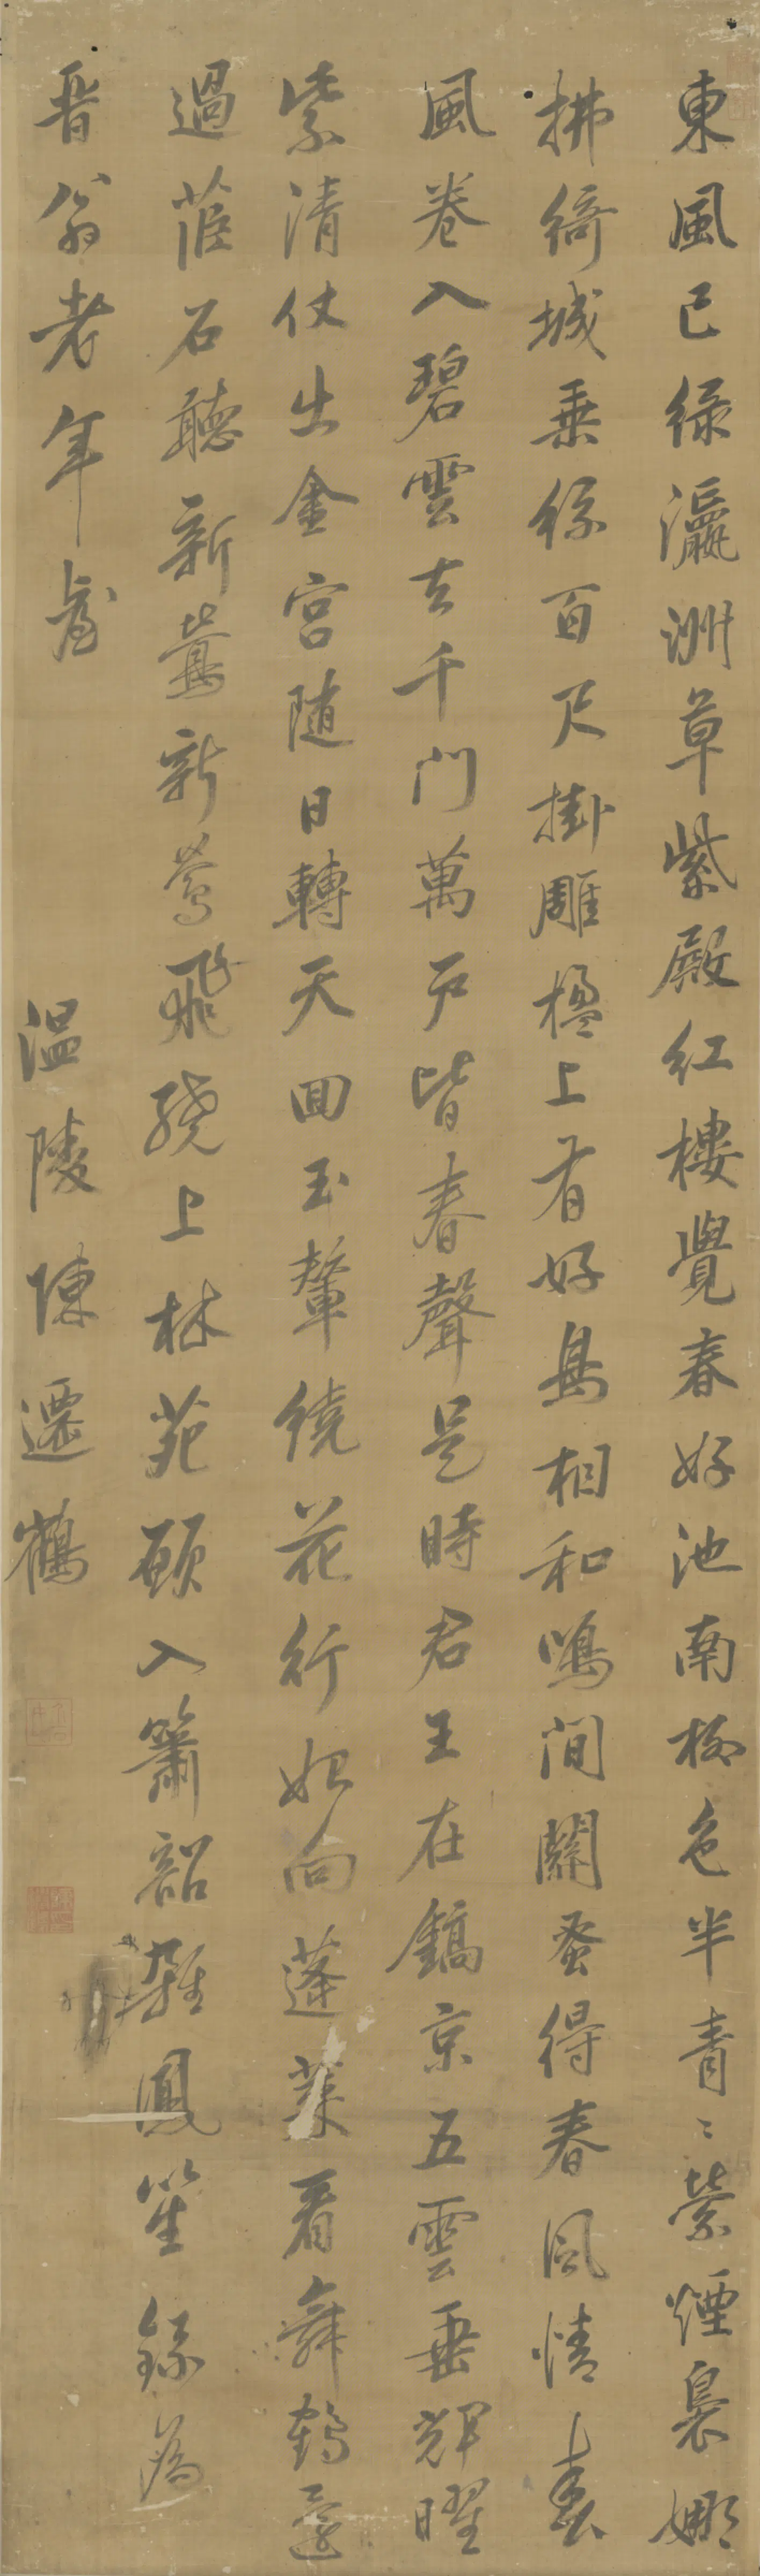 東風已綠瀛洲草紫殿紅樓覺春好池南柳色半青青縈煙裊娜
拂綺城垂絲百尺掛雕楹上有好鳥相和鳴間關蚤得春風情春
風卷入碧雲去千門萬戶皆春聲是時君王在鎬京五雲垂輝曜
紫清仗出金宮隨日轉天回玉輦繞花行始向蓬萊看舞鶴還
過茝石聽新鶯新鶯飛繞上林苑願入簫韶雜鳳笙錄為
晉翁老年臺
溫陵陳遷鶴